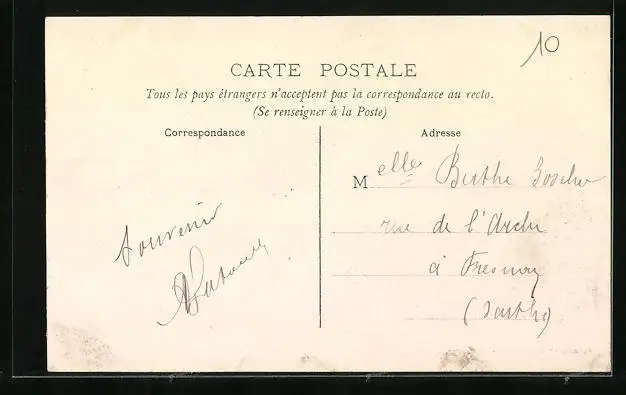 10
CARTE POSTALE
Tous les pays étrangers n'acceptent pas la correspondance au recto.
(Se renseigner à la Poste)
Correspondance
Adresse
Melle Berthe
rue de l'Arche
à Fresnay
(Sarthe)
Souvenir